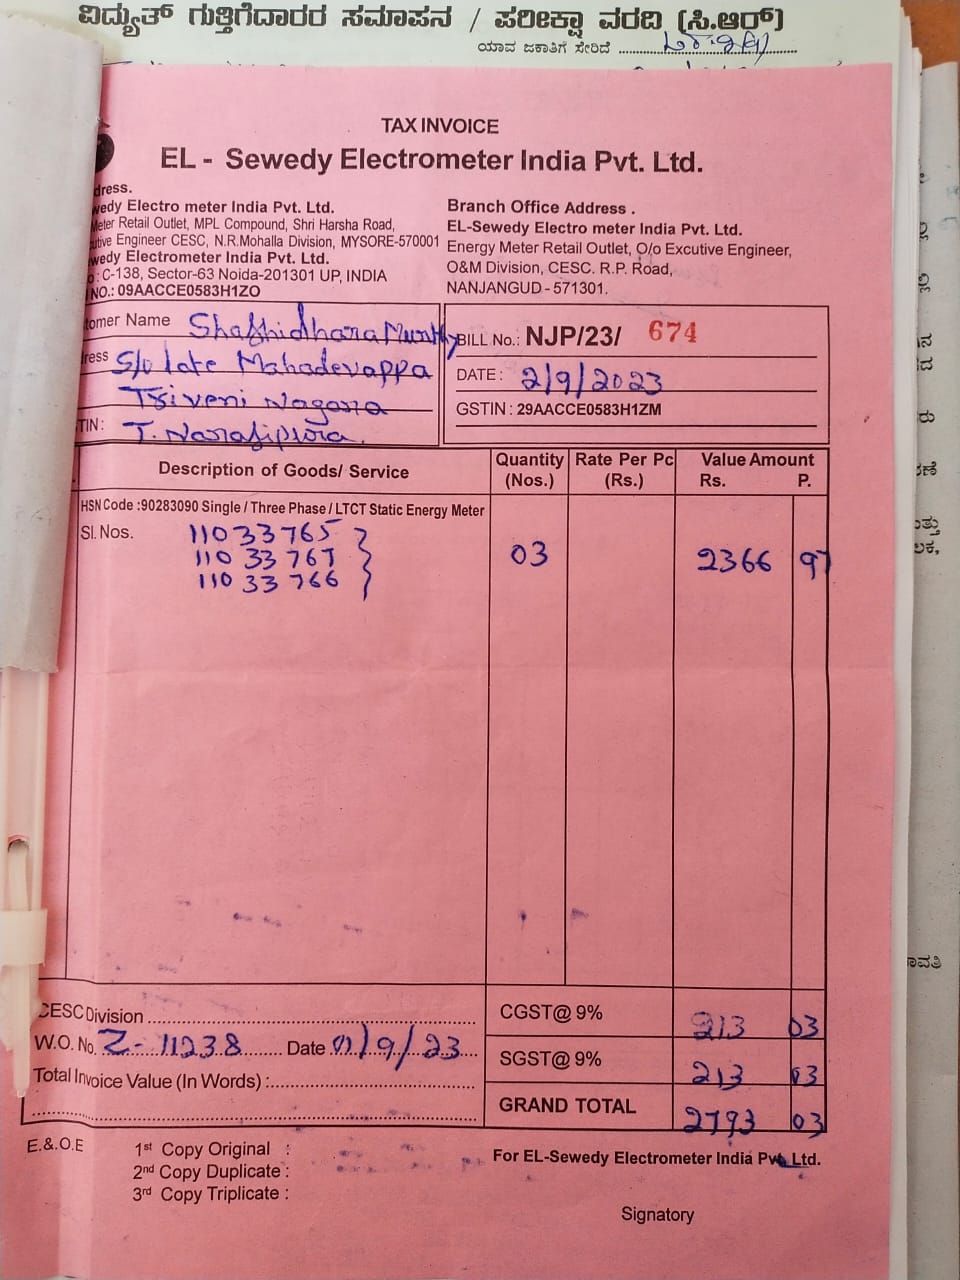 ವಿದ್ಯುತ್ ಗುತ್ತಿಗೆದಾರರ ಸಮಾಪನ / ಪರೀಕ್ಷಾ ವರದಿ (ಸಿ.ಆರ್)
ಯಾವ ಜಕಾತಿಗೆ ಸೇರಿದೆ
TAX INVOICE
EL - Sewedy Electrometer India Pvt. Ltd.
dress.
wedy Electro meter India Pvt. Ltd.
Meter Retail Outlet, MPL Compound, Shri Harsha Road,
utive Engineer CESC, N.R.Mohalla Division, MYSORE-570001
wedy Electrometer India Pvt. Ltd.
: C-138, Sector-63 Noida-201301 UP, INDIA
NO.: 09AACCE0583H1ZO
Branch Office Address .
EL-Sewedy Electro meter India Pvt. Ltd.
Energy Meter Retail Outlet, O/o Excutive Engineer,
O&M Division, CESC. R.P. Road,
NANJANGUD - 571301.
tomer Name Shashidhara Murthy
ress S/o late Mahadevappa
Triveni Nagara
TIN: T. Narasipura.
BILL No.: NJP/23/ 674
DATE : 2/9/2023
GSTIN : 29AACCE0583H1ZM
Description of Goods/ Service Quantity (Nos.) Rate Per Pc (Rs.) Value Amount Rs. P.
HSN Code :90283090 Single / Three Phase / LTCT Static Energy Meter
Sl. Nos. 11033765
11033767 03 2366 97
11033766
CESC Division
W.O. No. Z - 11238 Date 01/9/23
Total Invoice Value (In Words) :
CGST@ 9% 213 03
SGST@ 9% 213 03
GRAND TOTAL 2793 03
E.& O.E
1st Copy Original :
2nd Copy Duplicate :
3rd Copy Triplicate :
For EL-Sewedy Electrometer India Pvt. Ltd.
Signatory